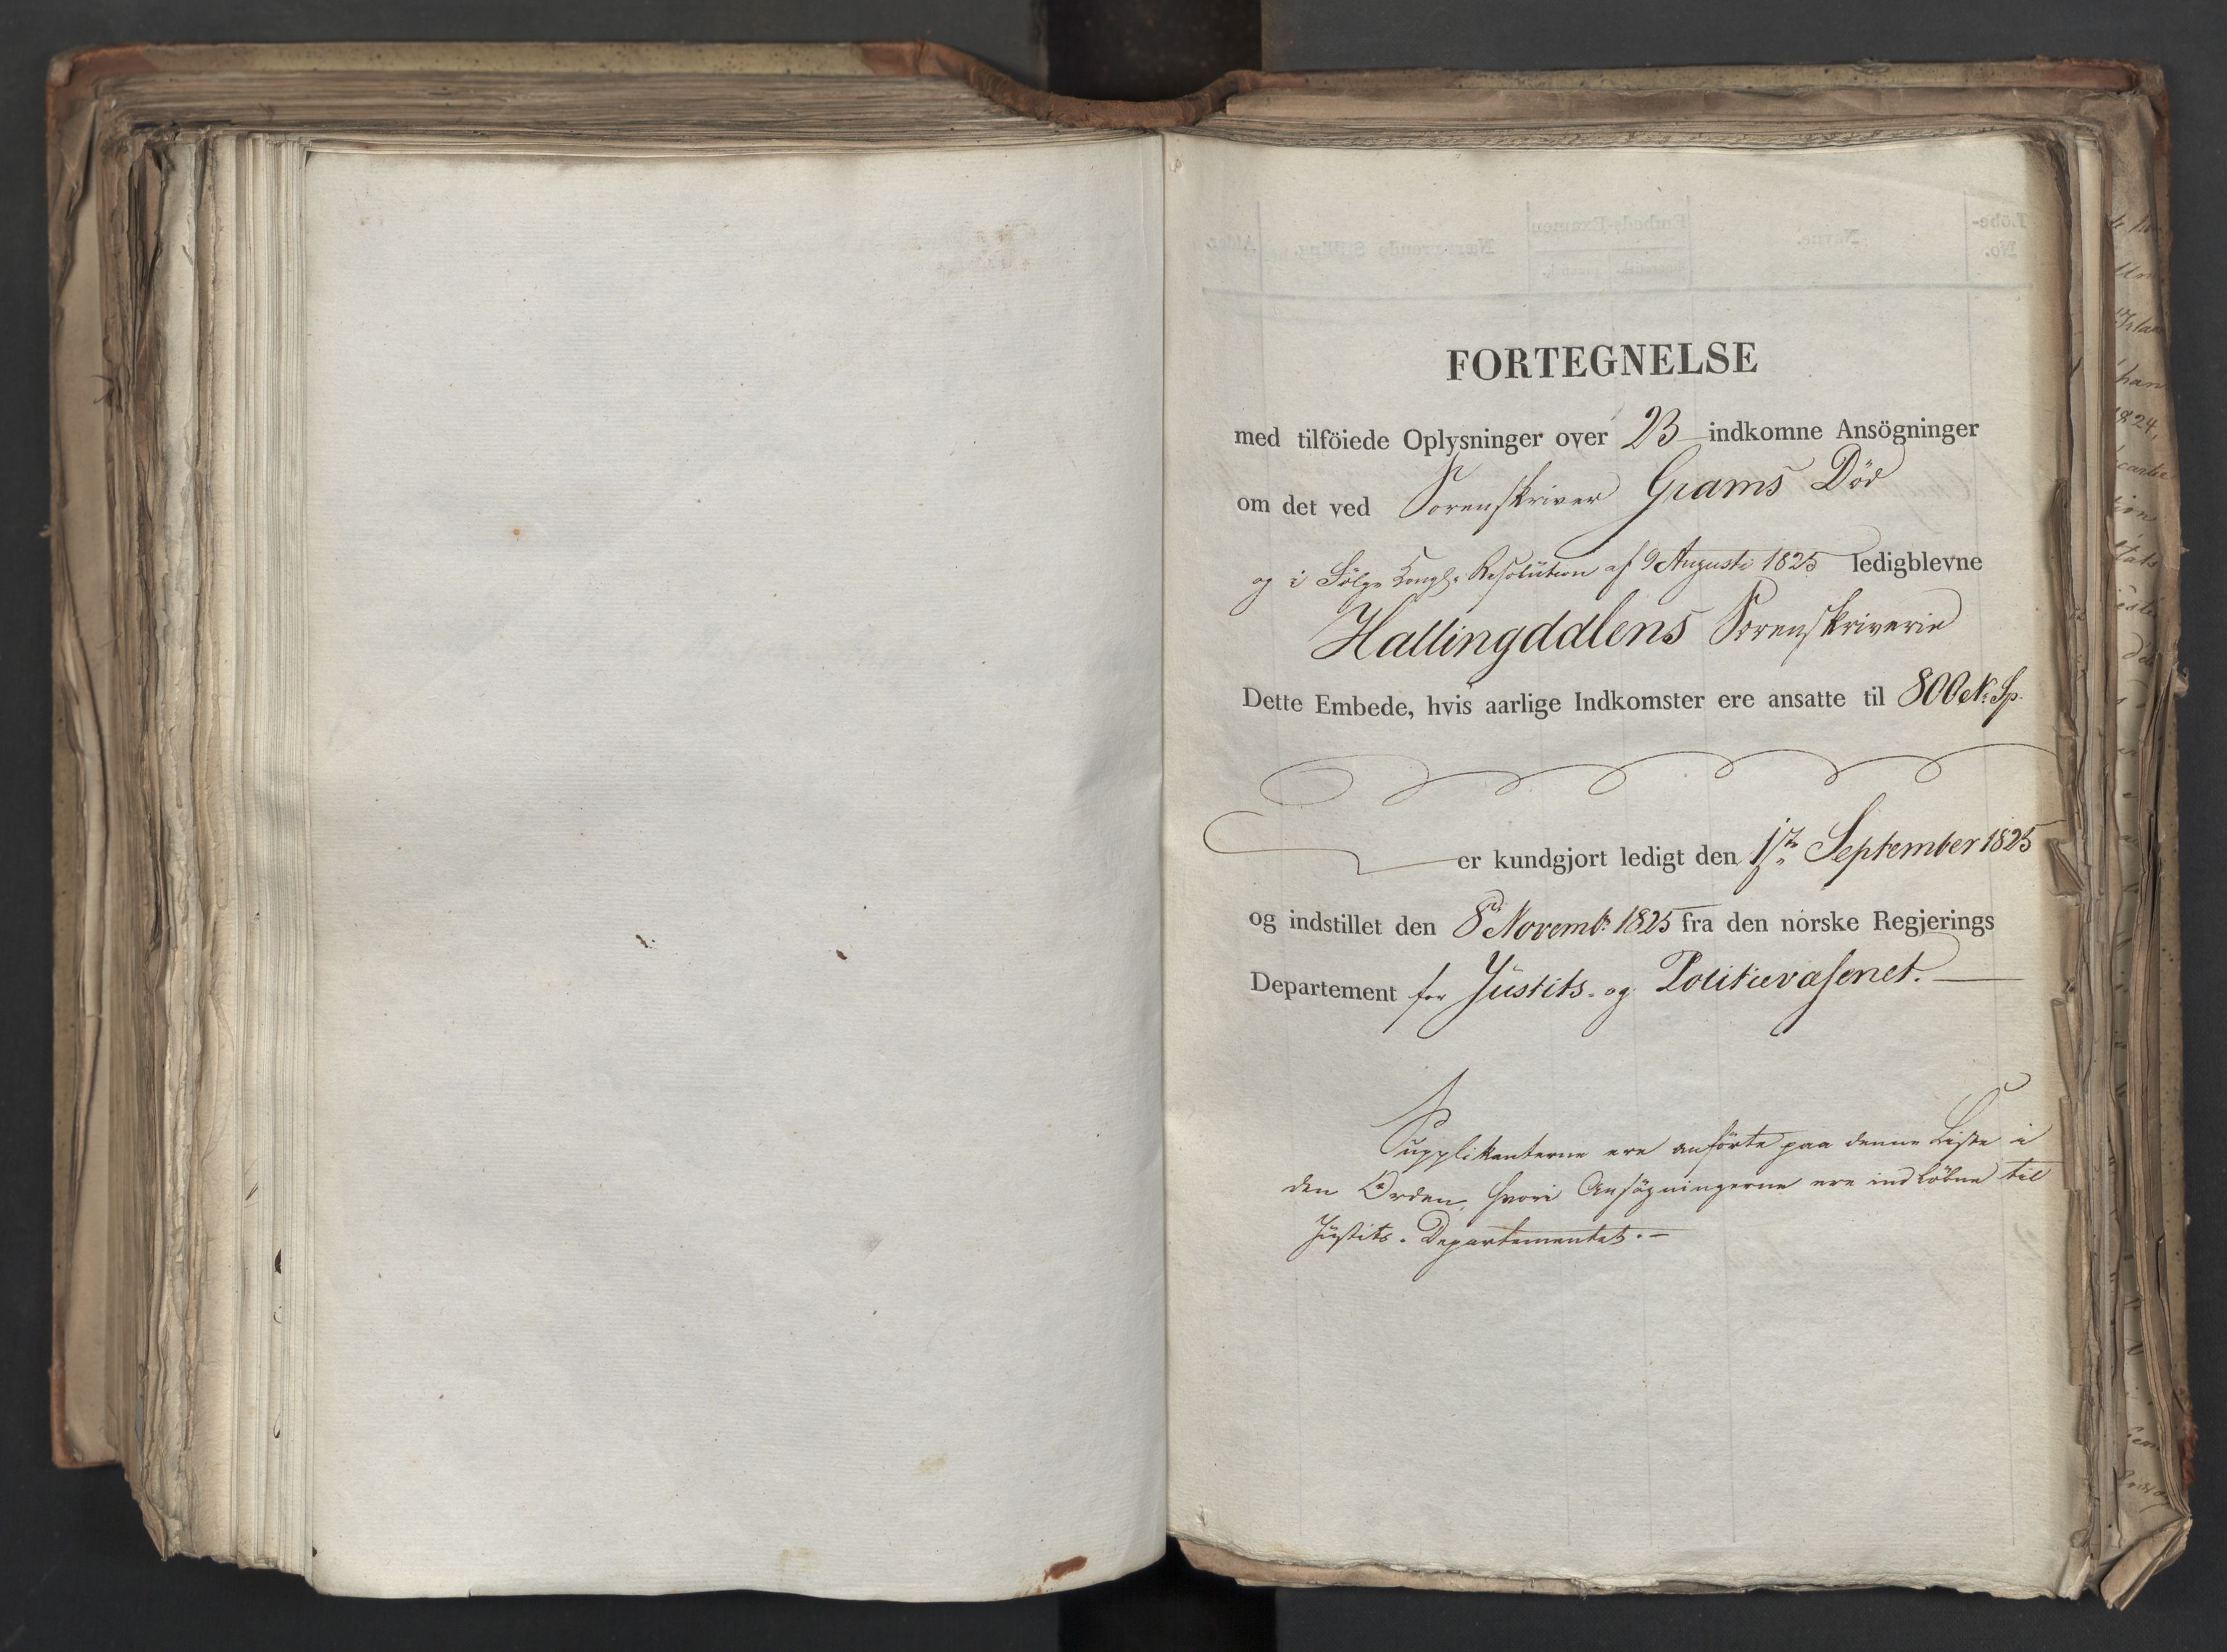 FORTEGNELSE
med tilföiede Oplysninger over 23 indkomne Ansögninger
om det ved Sorenskriver Grams Död
og i Fölge Kongl. Resolution af 9 Augusti 1825 ledigblevne
Hallingdalens Sorenskriverie
Dette Embede, hvis aarlige Indkomster ere ansatte til 800 N. Sp.
er kundgjort ledigt den September 1825
og indstillet den 8 Novemb. 1825 fra den norske Regjerings
Departement for Justits- og Politievæsenet.
Supplikanterne ere anförte paa denne Liste i
den Orden, hvori Ansögningerne ere indlöbne til
Justits-Departementet.